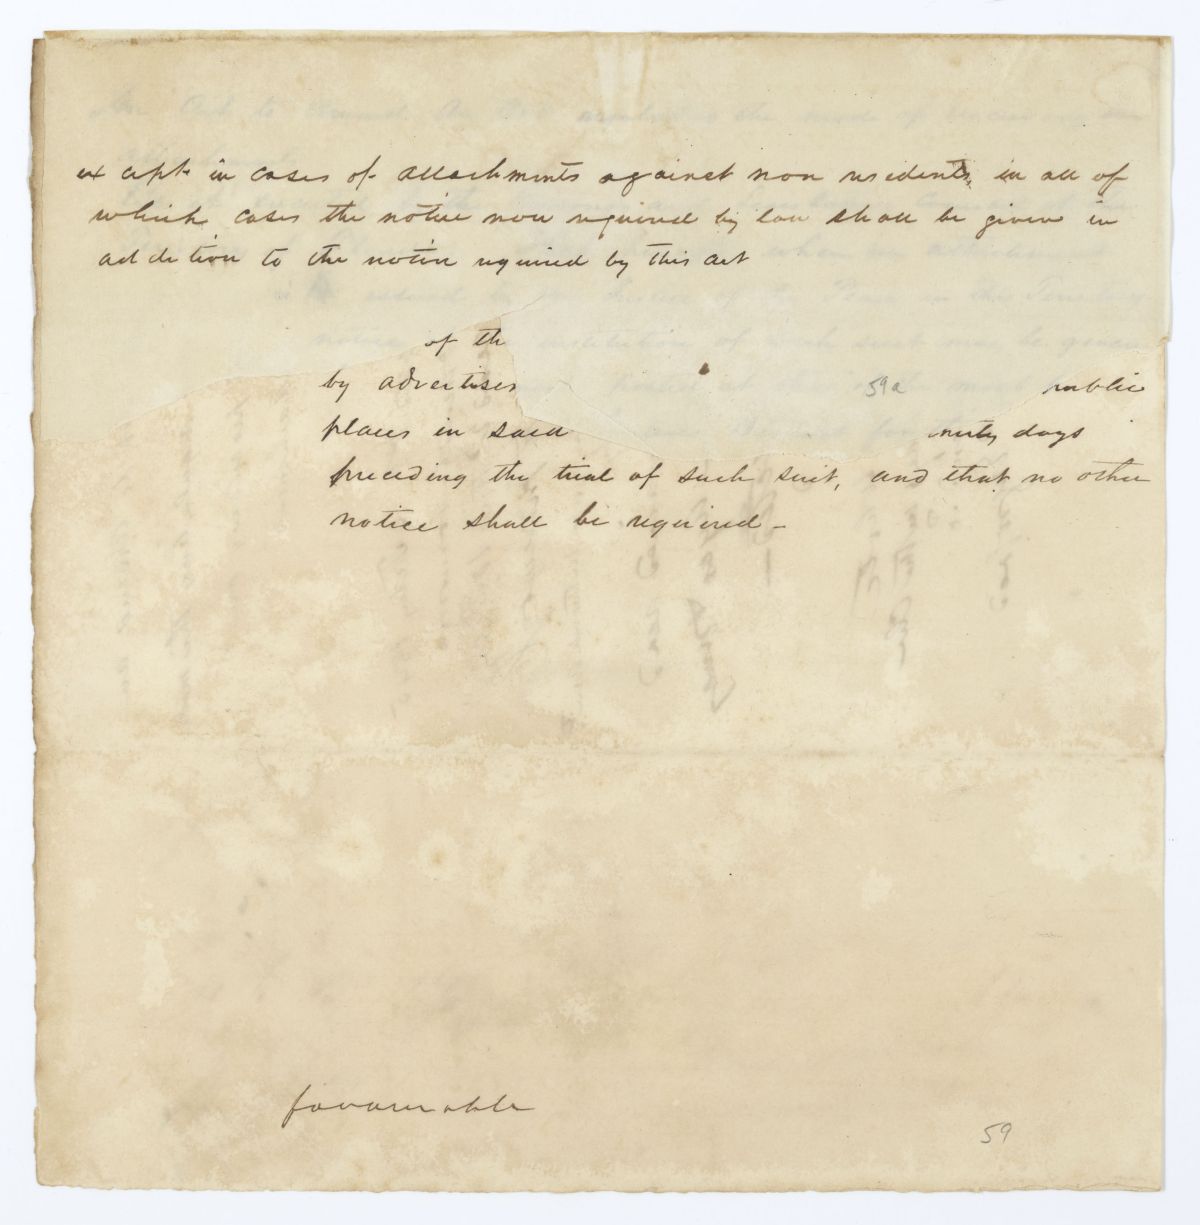 excpt in cases of attachments against non residents, in all of
which cases the notice now required by law shall be given in
addition to the notice required by this act
of th
by advertise
59a
public
places in said
days
preceding the trial of such suit, and that no other
notice shall be required -
favourable
59